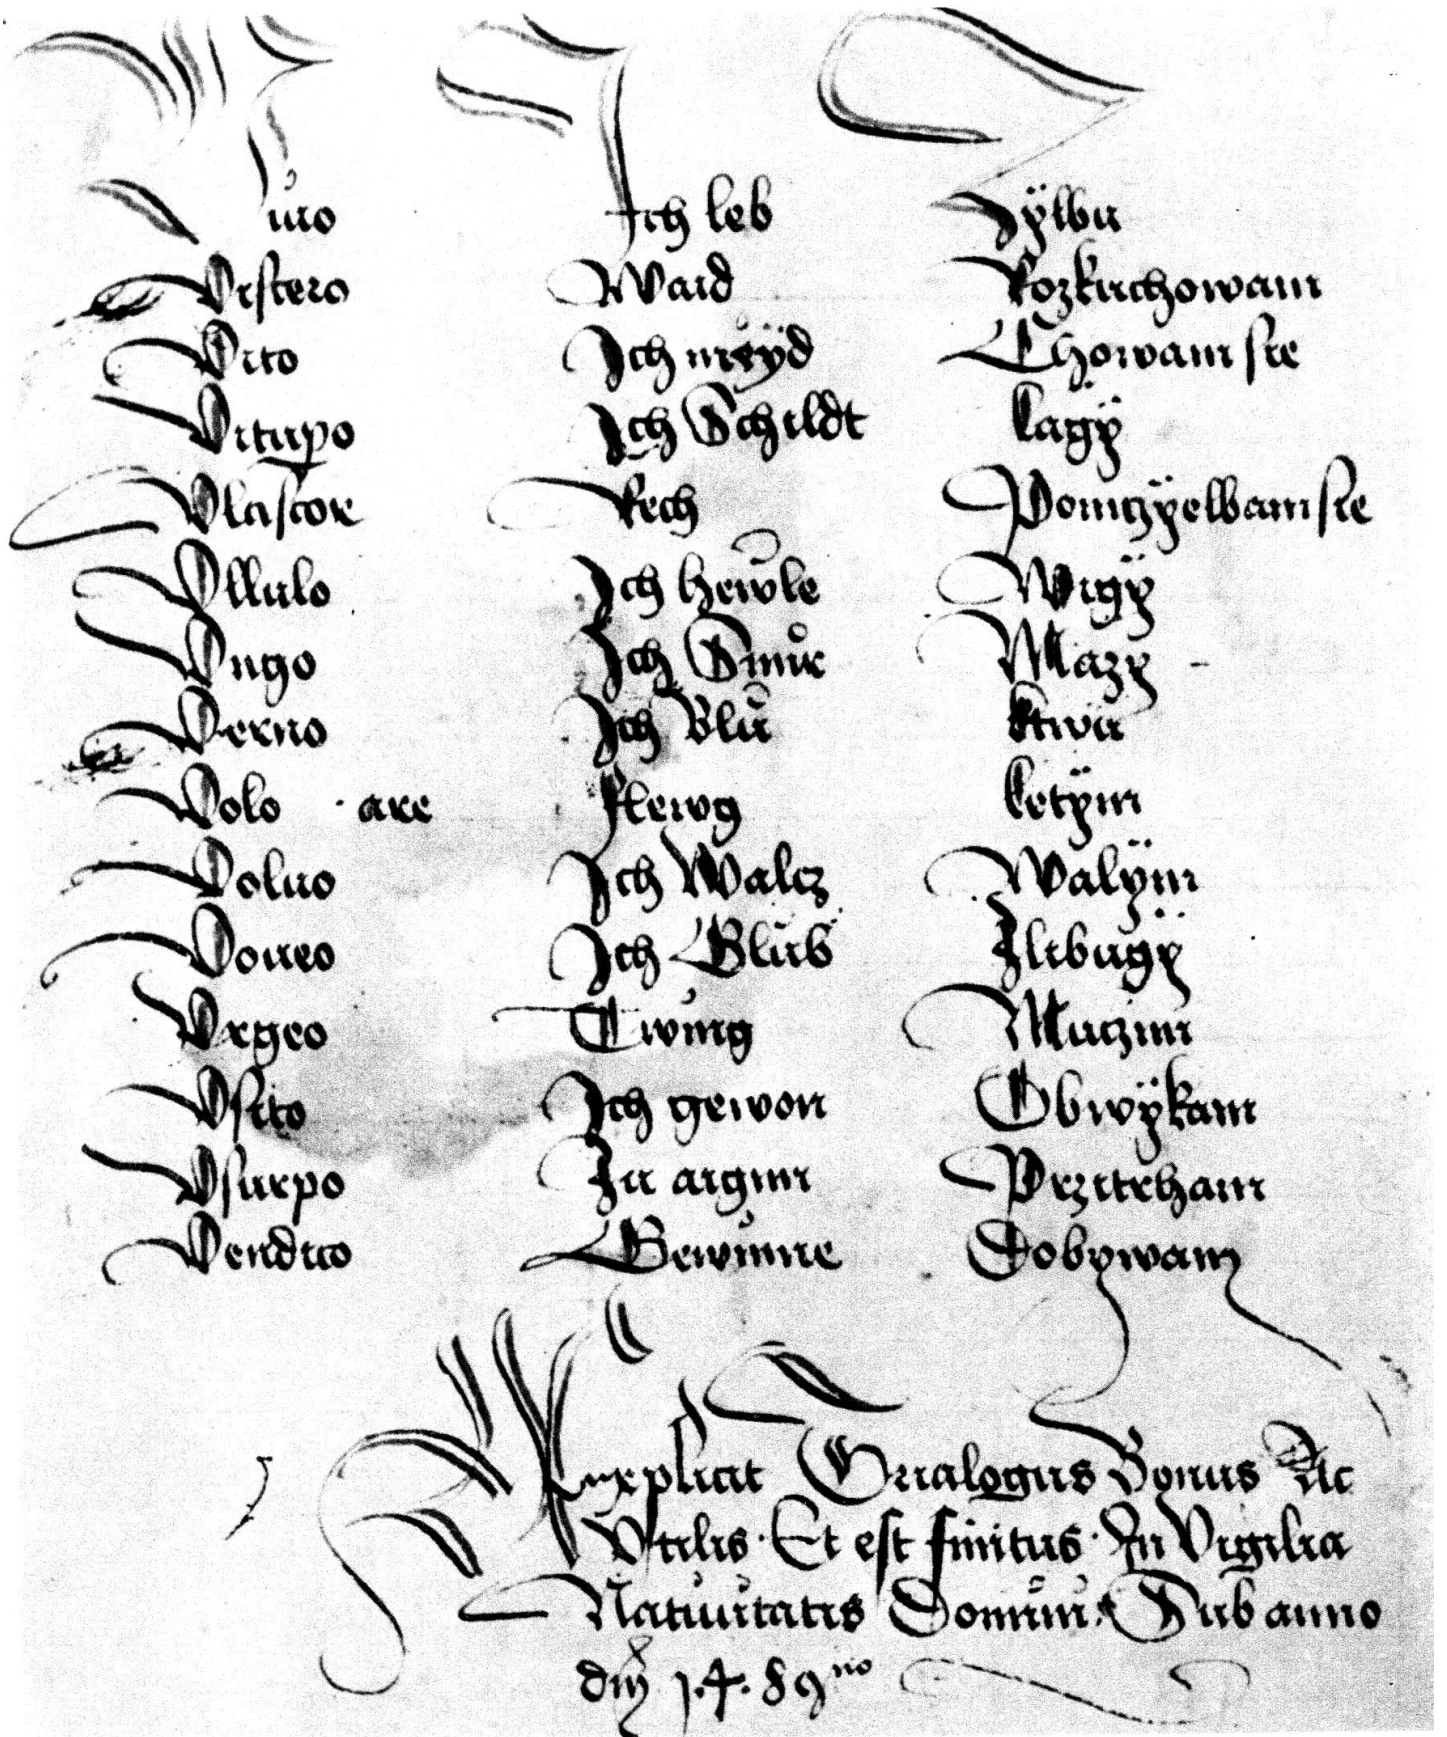 Viuo Ich leb Zÿwu
Vescero Waid
Vito Ich meÿd Chowam sie
Vitupo Ich Schildt lagÿ
Rech
Vllulo Ich hewle Wigÿ
Vngo Ich Smir Mazÿ
Verno Ich Blü ktwu
Volo are flewg letÿm
Voluo Ich Walcz Walÿm
Voueo Ich Glüb Slibugÿ
Vrgeo Twing Muczim
Vsito Ich gewon Obwÿkam
Vsurpo Zu aigim
Vendico Gewinne Dobÿwam
Explicit Bonus Ac
Vtilis · Et est finitus · In Vigilia
Natiuitatis Domini · Sub anno
dni 1·4·89no